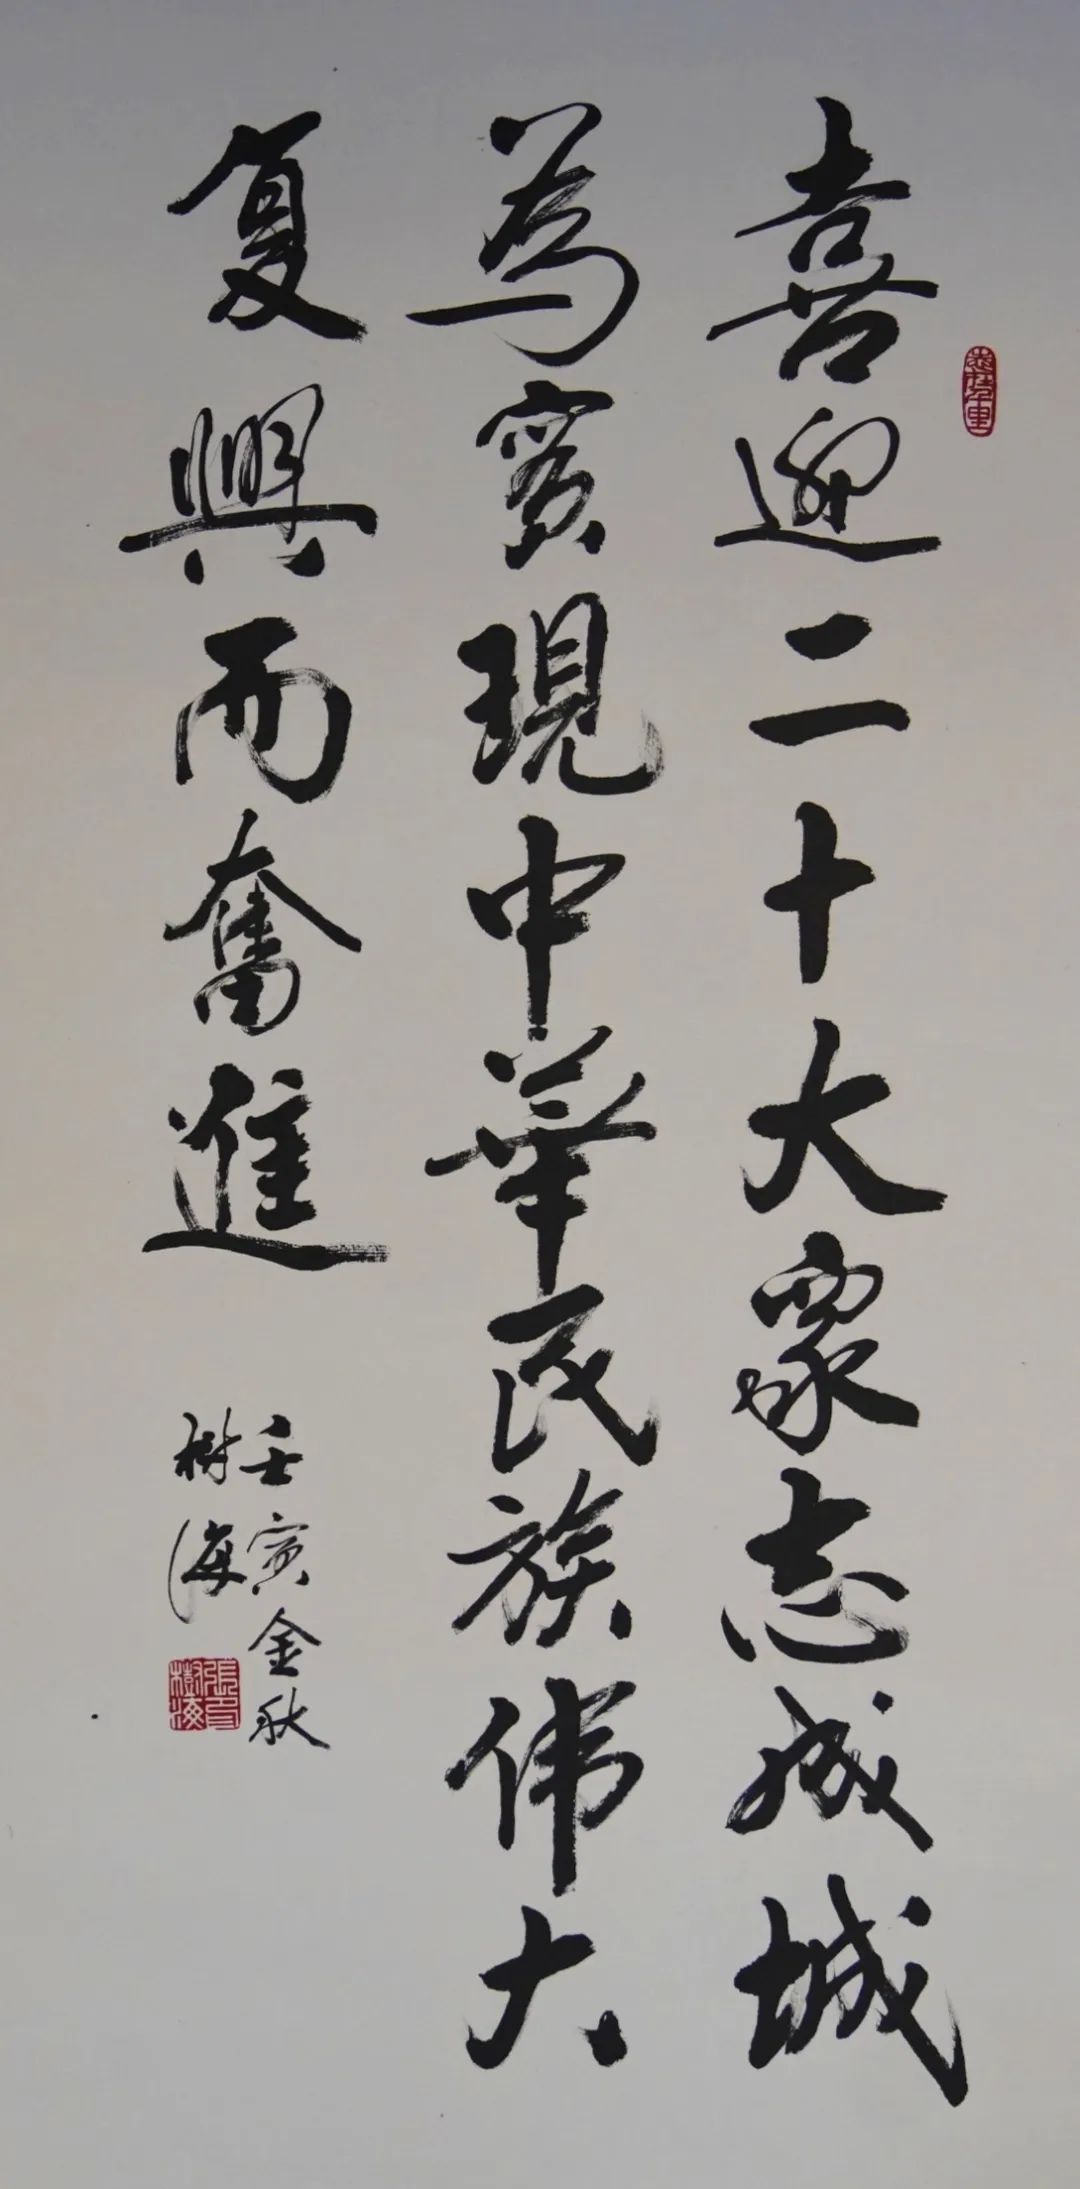 喜迎二十大众志成城
為實現中華民族伟大
复興而奮進
壬寅金秋
树海
張印
樹海